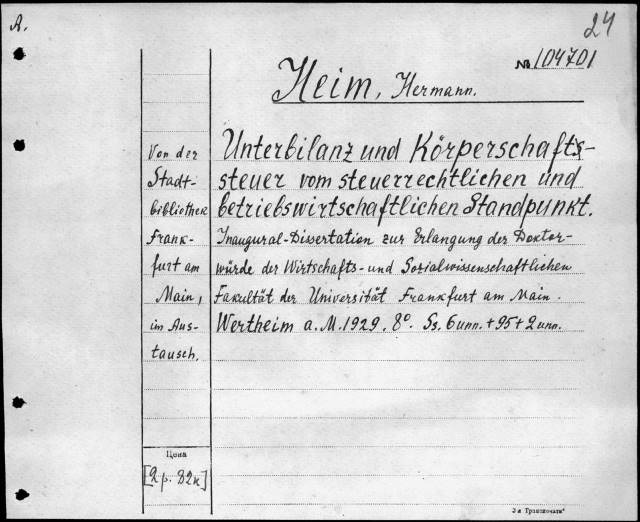 A.
24
№ 104701
Heim, Hermann.
Von der
Stadt-
bibliothek
Frank-
furt am
Main,
im Aus-
tausch.
Unterbilanz und Körperschafts-
steuer vom steuerrechtlichen und
betriebswirtschaftlichen Standpunkt.
Inaugural-Dissertation zur Erlangung der Doktor-
würde der Wirtschafts- und Sozialwissenschaftlichen
Fakultät der Universität Frankfurt am Main.
Wertheim a. M. 1929. 8°. Ss. 6 unn. + 95 + 2 unn.
Цена
[2 р. 82к]
3-я Транспечати"